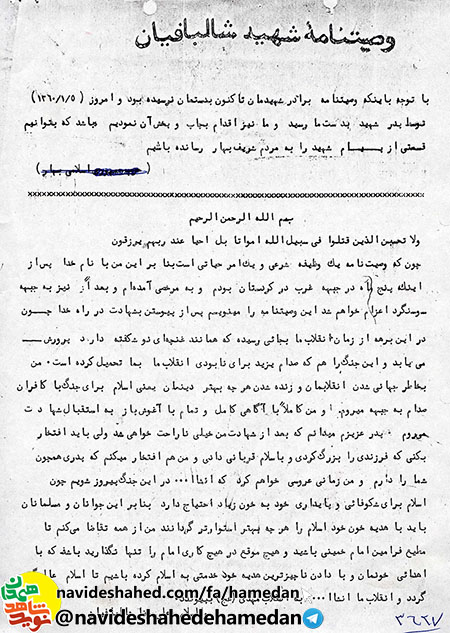 وصیتنامهٔ شهید شالبافیان
با توجه باینکه وصیتنامه برادر شهیدمان تاکنون بدستمان نرسیده بود و امروز (۱۳۶۰/۱/۵)
توسط پدر شهید بدست ما رسید و ما نیز اقدام بچاپ و پخش آن نمودیم باشد که بتوانیم
قسمتی از پیام شهید را به مردم شریف بهار رسانده باشیم
بسم الله الرحمن الرحیم
ولا تحسبن الذین قتلوا فی سبیل الله امواتا بل احیا عند ربهم یرزقون
چون که وصیتنامه یک وظیفه شرعی و یک امر حیاتی است بنا بر این من با نام خدا پس از
اینکه پنج ماه در جبهه غرب در کردستان بودم و به مرخصی آمده‌ام و بعد از نیز به جبهه
سوسنگرد اعزام خواهم شد این وصیتنامه را مینویسم پس از پیوستن بشهادت در راه خدا چون
در این برهه از زمان انقلاب ما بجائی رسیده که همانند غنچه‌ای نو شکفته دارد پرورش
می یابد و این جنگ را هم که صدام یزید برای نابودی انقلاب ما بما تحمیل کرده است ۰ من
بخاطر جهانی شدن انقلابمان و زنده شدن هر چه بهتر دینمان یعنی اسلام برای جنگ با کافران
صدام به جبهه میروم و من کاملاً با آگاهی کامل و تمام با آغوش باز به استقبال شهادت
میروم ۰ پدر عزیزم میدانم که بعد از شهادت من خیلی ناراحت خواهی شد ولی باید افتخار
بکنی که فرزندی را بزرگ کردی و باسلام قربانی دادی و من هم افتخار میکنم که پدری همچون
شما را دارم و من زمانی عروسی خواهم کرد که انشاء ا۰۰۰ در این جنگ پیروز شویم چون
اسلام برای شکوفائی و پایداری خود به خون زیاد احتیاج دارد بنا بر این جوانان و مسلمانان
باید با هدیه خون خود اسلام را هر چه بهتر استوارتر گردانند من از همه تقاضا میکنم تا
مطیع فرامین امام خمینی باشید و هیچ موقع در هیچ کاری امام را تنها نگذارید باشد که با
اهدائی خونمان و با دادن ناچیزترین هدیه خود خدمتی به اسلام کرده باشیم تا اسلام
گردد و انقلاب ما انشاء ا۰۰۰ به انقلاب مهدی (عج) بپیوندد
navideshahed.com/fa/hamedan
@navideshahedehamedan
۳۶۲۷
نوید شاهد همدان